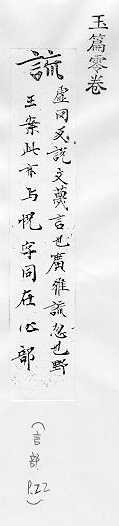 玉篇零卷
詤
虛同反說文蔑言也廣雅詤忽也野
王案此亦与怳字同在心部
(言部 P.22)